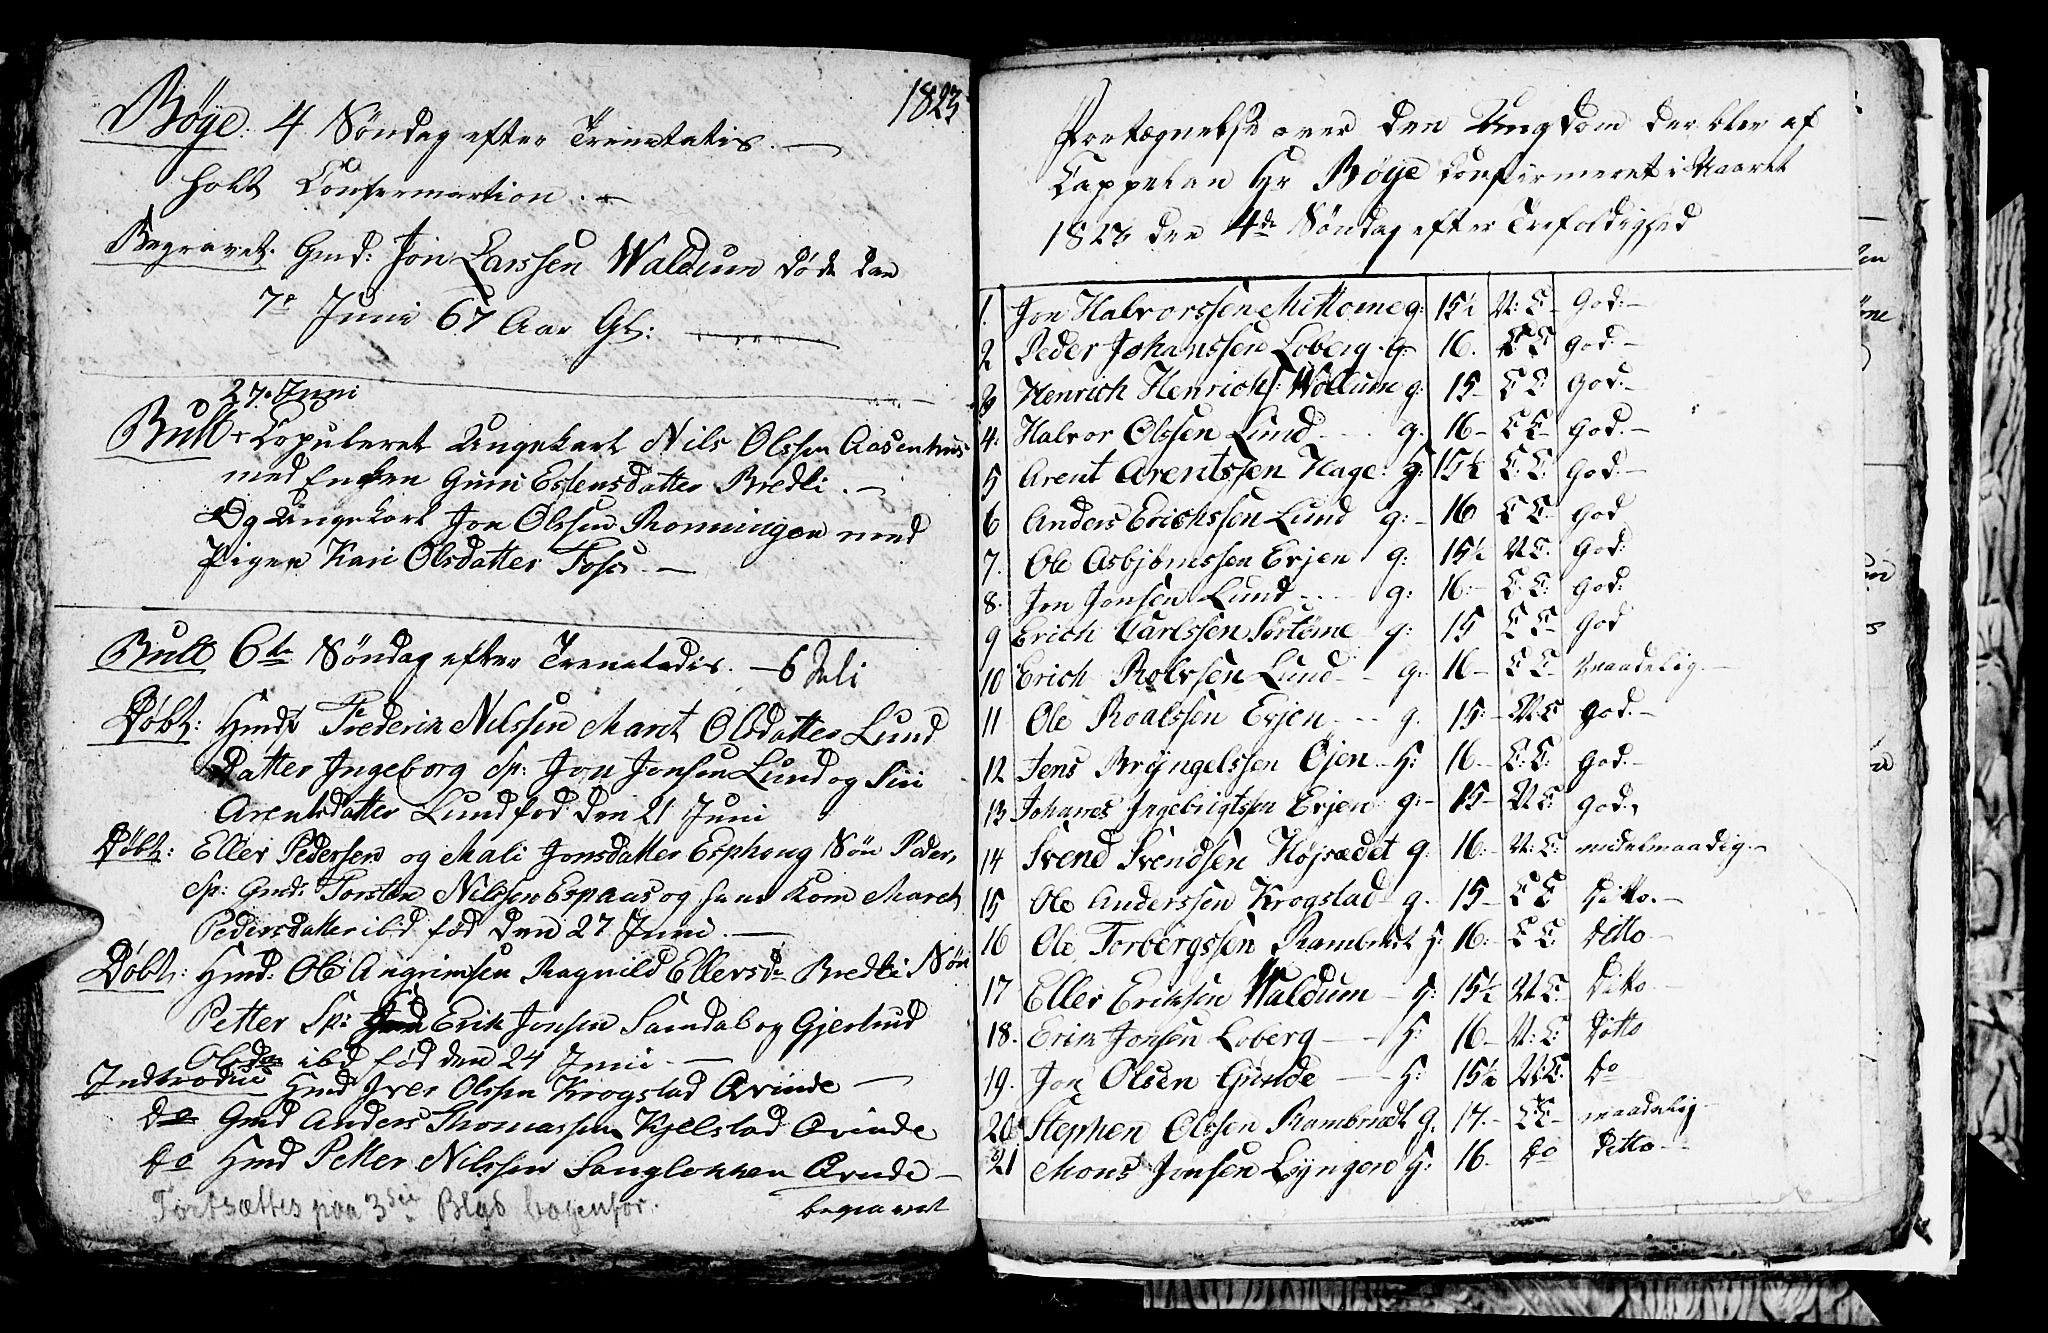 1823
Böye. 4 Söndag efter Trinetatis.
holt Confermartion.
Begravet. Gmd: Jon Larssen Waldum döde den
7de Juni 67 Aar Gl:
27. Juni
Bull Copuleret Ungekarl Nils Olssen Aasenhus
med Enken Guru Estensdatter Bredli.
Og Ungekarl Jon Olssen Rönningen med
Pigen Kari Olsdatter Foss.
Bull 6te Söndag efter Trenetadis. 6 Juli
Döbt: Hmd Frederik Nilssen Maret Olsdatter Lund
Datter Ingeborg Sp: Jon Jonsen Lund og Siri
Arentsdatter Lund född den 21 Juni
Döbt: Eller Pedersen og Mali Jonsdatter Esphoug Sön Peder,
Sp: Gmd: Torsten Nilssen Espaas og hans Kone Maret
Pedersdatter ibd föd den 27 Juni.
Döbt: Hmd: Ole Angrimsen Ragnild Ellersd Bredli Sön
Petter Sp: Erik Jonsen Samdal og Gjertrud
Olsda ibd föd den 24 Juni
Indtrodue Hmd Iver Olssen Krogstad Qvinde
do Gmd Anders Thomassen Kjelstad Qvinde
do Hmd Petter Nilssen Sanglokken Qvinde
begravet
Fortsættes paa 3die Blad bagenfor.
Portegnelse over den Ungdom der blev af
Cappelan Hr Böye Confirmeret i Aaret
1823 den 4de Söndag efter Trefoldighed
1. Jon Halvorssen Mittome g: 15½ N: C God:
2 Peder Johanssen Loberg g: 16. C C God:
3 Henrich Henrichs: Wollum g: 15 C C: God:
4: Halvor Olssen Lund g. 16 C C God.
5 Arent Arentssen Hage: g: 15½ C. C: God:
6 Anders Erichssen Lund g: 16 C C: God
7. Ole Asbjörnssen Evjen g: 15½ N C. God:
8. Jon Jonsen Lund g: 16 C. C: God:
9 Erich Carlssen Sörtöme g: 15 C C God
10 Erich Rolvssen Lund g: 16 C C. Maadelig.
11 Ole Roalssen Evjen g. 15: N: C God.
12 Jens Bryngelssen Öjen H: 16 C: C: God.
13 Johanes Ingebrigtsen Evjen g: 15 N C: God.
14 Svend Svendsen Höjsædet g. 16: N: C: medelmaadig.
15 Ole Anderssen Krogstad g. 15 C C Ditto.
16 Ole Torbergssen Rambredt H: 16: C C: Ditto
17 Eller Eriksen Waldum H: 15½ N C: Ditto.
18. Erik Jonsen Loberg H: 16 N: C: Ditto
19. Jon Olsen Gunde H: 15½ N: C: do
20 Stephen Olssen Rambredt g. 17. C C: maadelig
21 Mons Jonsen Lyngen H: 16. do Ditto